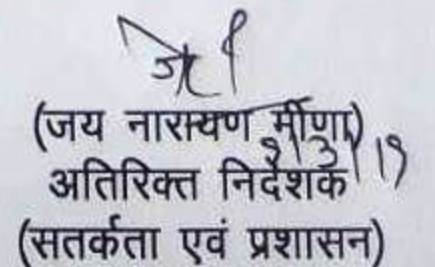 (जय नारायण मीणा)
9/3/19
अतिरिक्त निदेशक
(सतर्कता एवं प्रशासन)